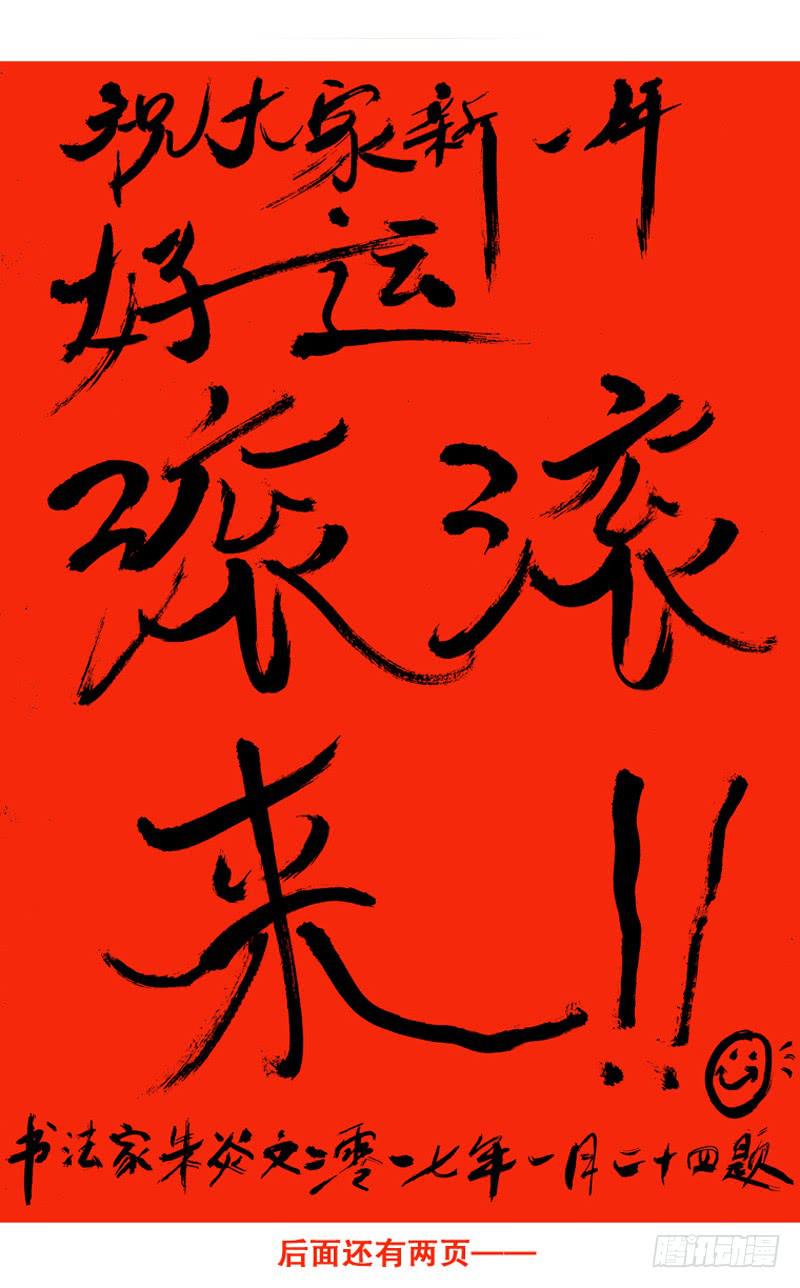 祝大家新一年
好运
滚滚
来!!
书法家朱炎文二零一七年一月二十四题
后面还有两页——
腾讯动漫